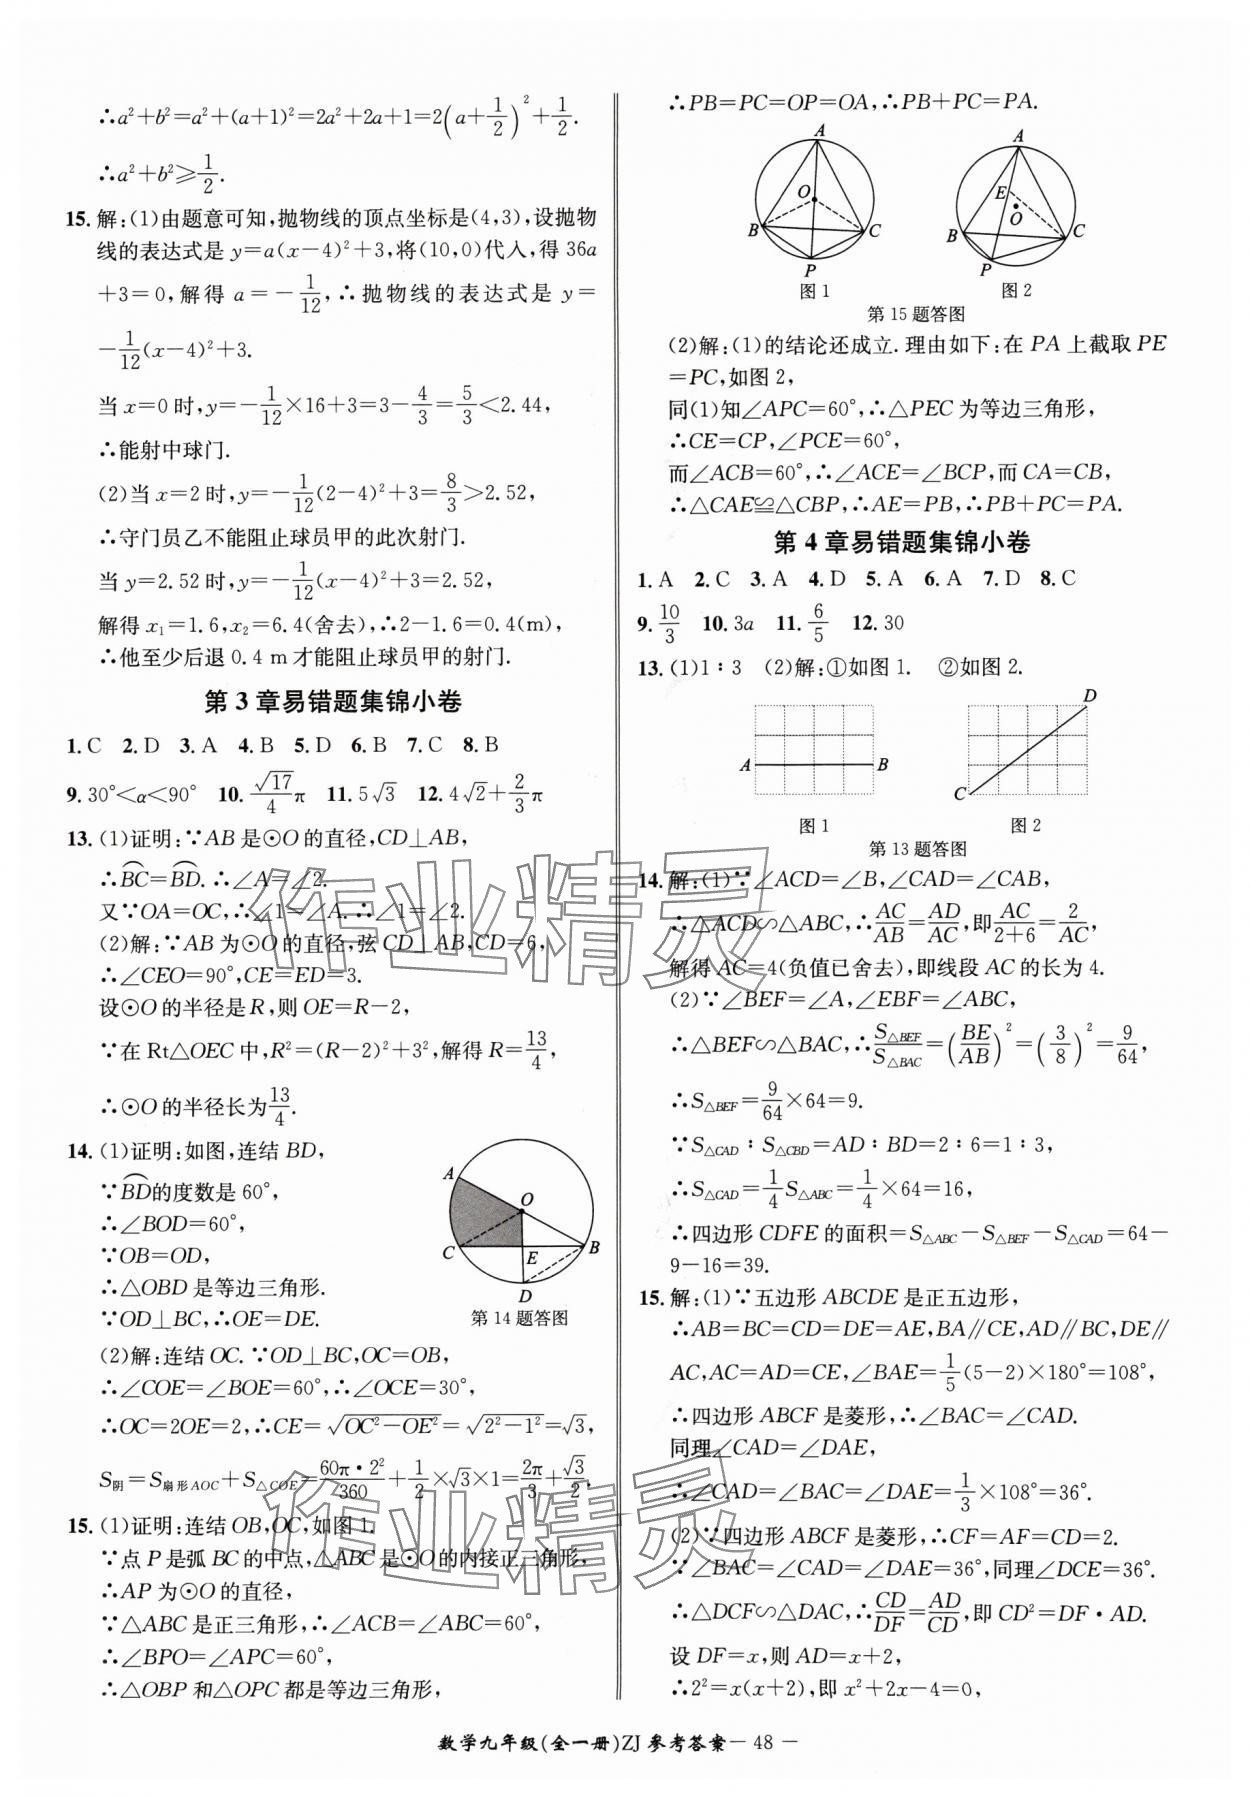 ∴a²+b²=a²+(a+1)²=2a²+2a+1=2(a+1/2)²+1/2.
∴a²+b²≥1/2.
15. 解:(1)由题意可知,抛物线的顶点坐标是(4,3),设抛物
线的表达式是 y=a(x-4)²+3,将(10,0)代入,得 36a
+3=0,解得 a=-1/12,∴抛物线的表达式是 y=
-1/12(x-4)²+3.
当 x=0 时,y=-1/12×16+3=3-4/3=5/3<2.44,
∴能射中球门.
(2)当 x=2 时,y=-1/12(2-4)²+3=8/3>2.52,
∴守门员乙不能阻止球员甲的此次射门.
当 y=2.52 时,y=-1/12(x-4)²+3=2.52,
解得 x₁=1.6,x₂=6.4(舍去),∴2-1.6=0.4(m),
∴他至少后退 0.4 m才能阻止球员甲的射门.
第 3 章易错题集锦小卷
1. C 2. D 3. A 4. B 5. D 6. B 7. C 8. B
9. 30°<α<90° 10. √17/4 π 11. 5√3 12. 4√2+2/3 π
13. (1)证明:∵AB 是⊙O 的直径,CD⊥AB,
∴BC=BD. ∴∠A=∠2.
又∵OA=OC,∴∠1=∠A. ∴∠1=∠2.
(2)解:∵AB 为⊙O 的直径,弦 CD⊥AB,CD=6,
∴∠CEO=90°,CE=ED=3.
设⊙O 的半径是 R,则 OE=R-2,
∵在 Rt△OEC 中,R²=(R-2)²+3²,解得 R=13/4,
∴⊙O 的半径长为13/4.
14. (1)证明:如图,连结 BD,
∵BD的度数是 60°,
∴∠BOD=60°,
∵OB=OD,
∴△OBD 是等边三角形.
∵OD⊥BC,∴OE=DE.
A
O
C
E
B
D
第 14 题答图
(2)解:连结 OC. ∵OD⊥BC,OC=OB,
∴∠COE=∠BOE=60°,∴∠OCE=30°,
∴OC=2OE=2,∴CE=√(OC²-OE²)=√(2²-1²)=√3,
S阴=S扇形AOC+S△COE=60π·2²/360+1/2×√3×1=2π/3+√3/2.
15. (1)证明:连结 OB,OC,如图 1.
∵点 P 是弧 BC 的中点,△ABC 是⊙O 的内接正三角形,
∴AP 为⊙O 的直径,
∵△ABC 是正三角形,∴∠ACB=∠ABC=60°,
∴∠BPO=∠APC=60°,
∴△OBP 和△OPC 都是等边三角形,
∴PB=PC=OP=OA,∴PB+PC=PA.
A
O
B
C
P
图 1
A
E
O
B
C
P
图 2
第 15 题答图
(2)解:(1)的结论还成立. 理由如下:在 PA 上截取 PE
=PC,如图 2,
同(1)知∠APC=60°,∴△PEC 为等边三角形,
∴CE=CP,∠PCE=60°,
而∠ACB=60°,∴∠ACE=∠BCP,而 CA=CB,
∴△CAE≌△CBP,∴AE=PB,∴PB+PC=PA.
第 4 章易错题集锦小卷
1. A 2. C 3. A 4. D 5. A 6. A 7. D 8. C
9. 10/3 10. 3a 11. 6/5 12. 30
13. (1)1∶3 (2)解:①如图 1. ②如图 2.
A
B
图 1
D
C
图 2
第 13 题答图
14. 解:(1)∵∠ACD=∠B,∠CAD=∠CAB,
∴△ACD∽△ABC,∴AC/AB=AD/AC,即AC/(2+6)=2/AC,
解得 AC=4(负值已舍去),即线段 AC 的长为 4.
(2)∵∠BEF=∠A,∠EBF=∠ABC,
∴△BEF∽△BAC,∴S△BEF/S△BAC=(BE/AB)²=(3/8)²=9/64,
∴S△BEF=9/64×64=9.
∵S△CAD∶S△CBD=AD∶BD=2∶6=1∶3,
∴S△CAD=1/4S△ABC=1/4×64=16,
∴四边形 CDFE 的面积=S△ABC-S△BEF-S△CAD=64-
9-16=39.
15. 解:(1)∵五边形 ABCDE 是正五边形,
∴AB=BC=CD=DE=AE,BA∥CE,AD∥BC,DE∥
AC,AC=AD=CE,∠BAE=1/5(5-2)×180°=108°,
∴四边形 ABCF 是菱形,∴∠BAC=∠CAD.
同理∠CAD=∠DAE,
∴∠CAD=∠BAC=∠DAE=1/3×108°=36°.
(2)∵四边形 ABCF 是菱形,∴CF=AF=CD=2.
∵∠BAC=∠CAD=∠DAE=36°,同理∠DCE=36°.
∴△DCF∽△DAC,∴CD/DF=AD/CD,即 CD²=DF·AD.
设 DF=x,则 AD=x+2,
∴2²=x(x+2),即 x²+2x-4=0,
数学九年级(全一册)ZJ 参考答案— 48 —
作业精灵
作业精灵